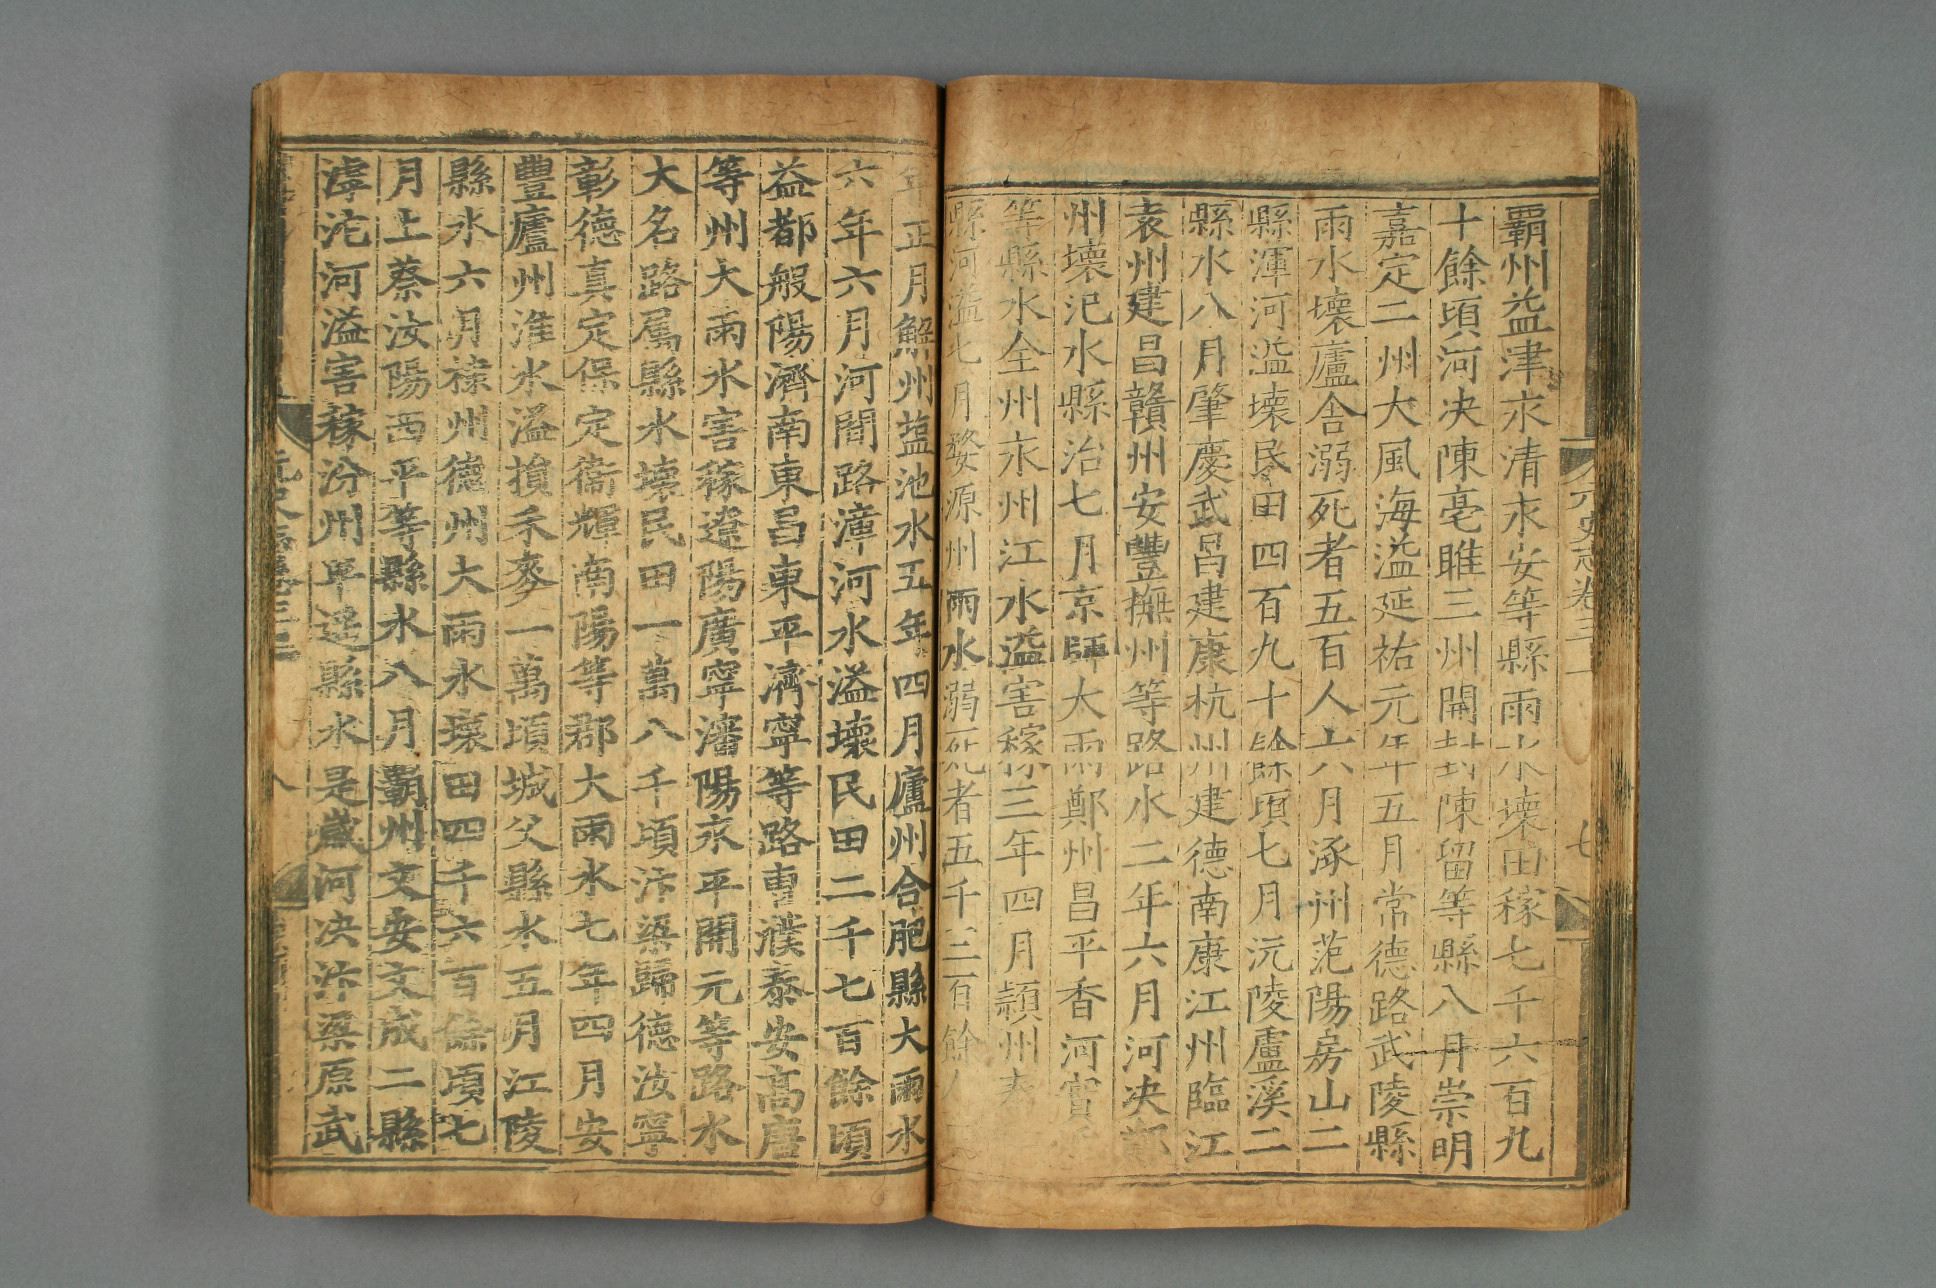 覇州益津永清永安等縣雨水壞田稼七千六百九
十餘頃河決陳亳睢三州開封陳留等縣八月崇明
嘉定二州大風海溢延祐元年五月常德路武陵縣
雨水壞廬舍溺死者五百人六月涿州范陽房山二
縣渾河溢壞民田四百九十餘頃七月沅陵盧溪二
縣水八月肇慶武昌建康杭州建德南康江州臨江
袁州建昌贛州安豐撫州等路水二年六月河決鄭
州壞汜水縣治七月京師大雨鄭州昌平香河寶
等縣水全州永州江水溢害稼三年四月潁州泰
縣河溢七月婺源州雨水溺死者五千三百餘人
年正月解州塩池水五年四月廬州合肥縣大雨水
六年六月河間路漳河水溢壞民田二千七百餘頃
益都般陽濟南東昌東平濟寧等路曹濮泰安高唐
等州大雨水害稼遼陽廣寧瀋陽永平開元等路水
大名路属縣水壞民田一萬八千頃汴梁歸德汝寧
彰德真定保定衞輝南陽等郡大雨水七年四月安
豐廬州淮水溢損禾麥一萬頃城父縣水五月江陵
縣水六月棣州德州大雨水壞田四千六百餘頃七
月上蔡汝陽西平等縣水八月覇州文安文成二縣
滹沱河溢害稼汾州平遥縣水是歲河決汴梁原武
元史志卷三
八